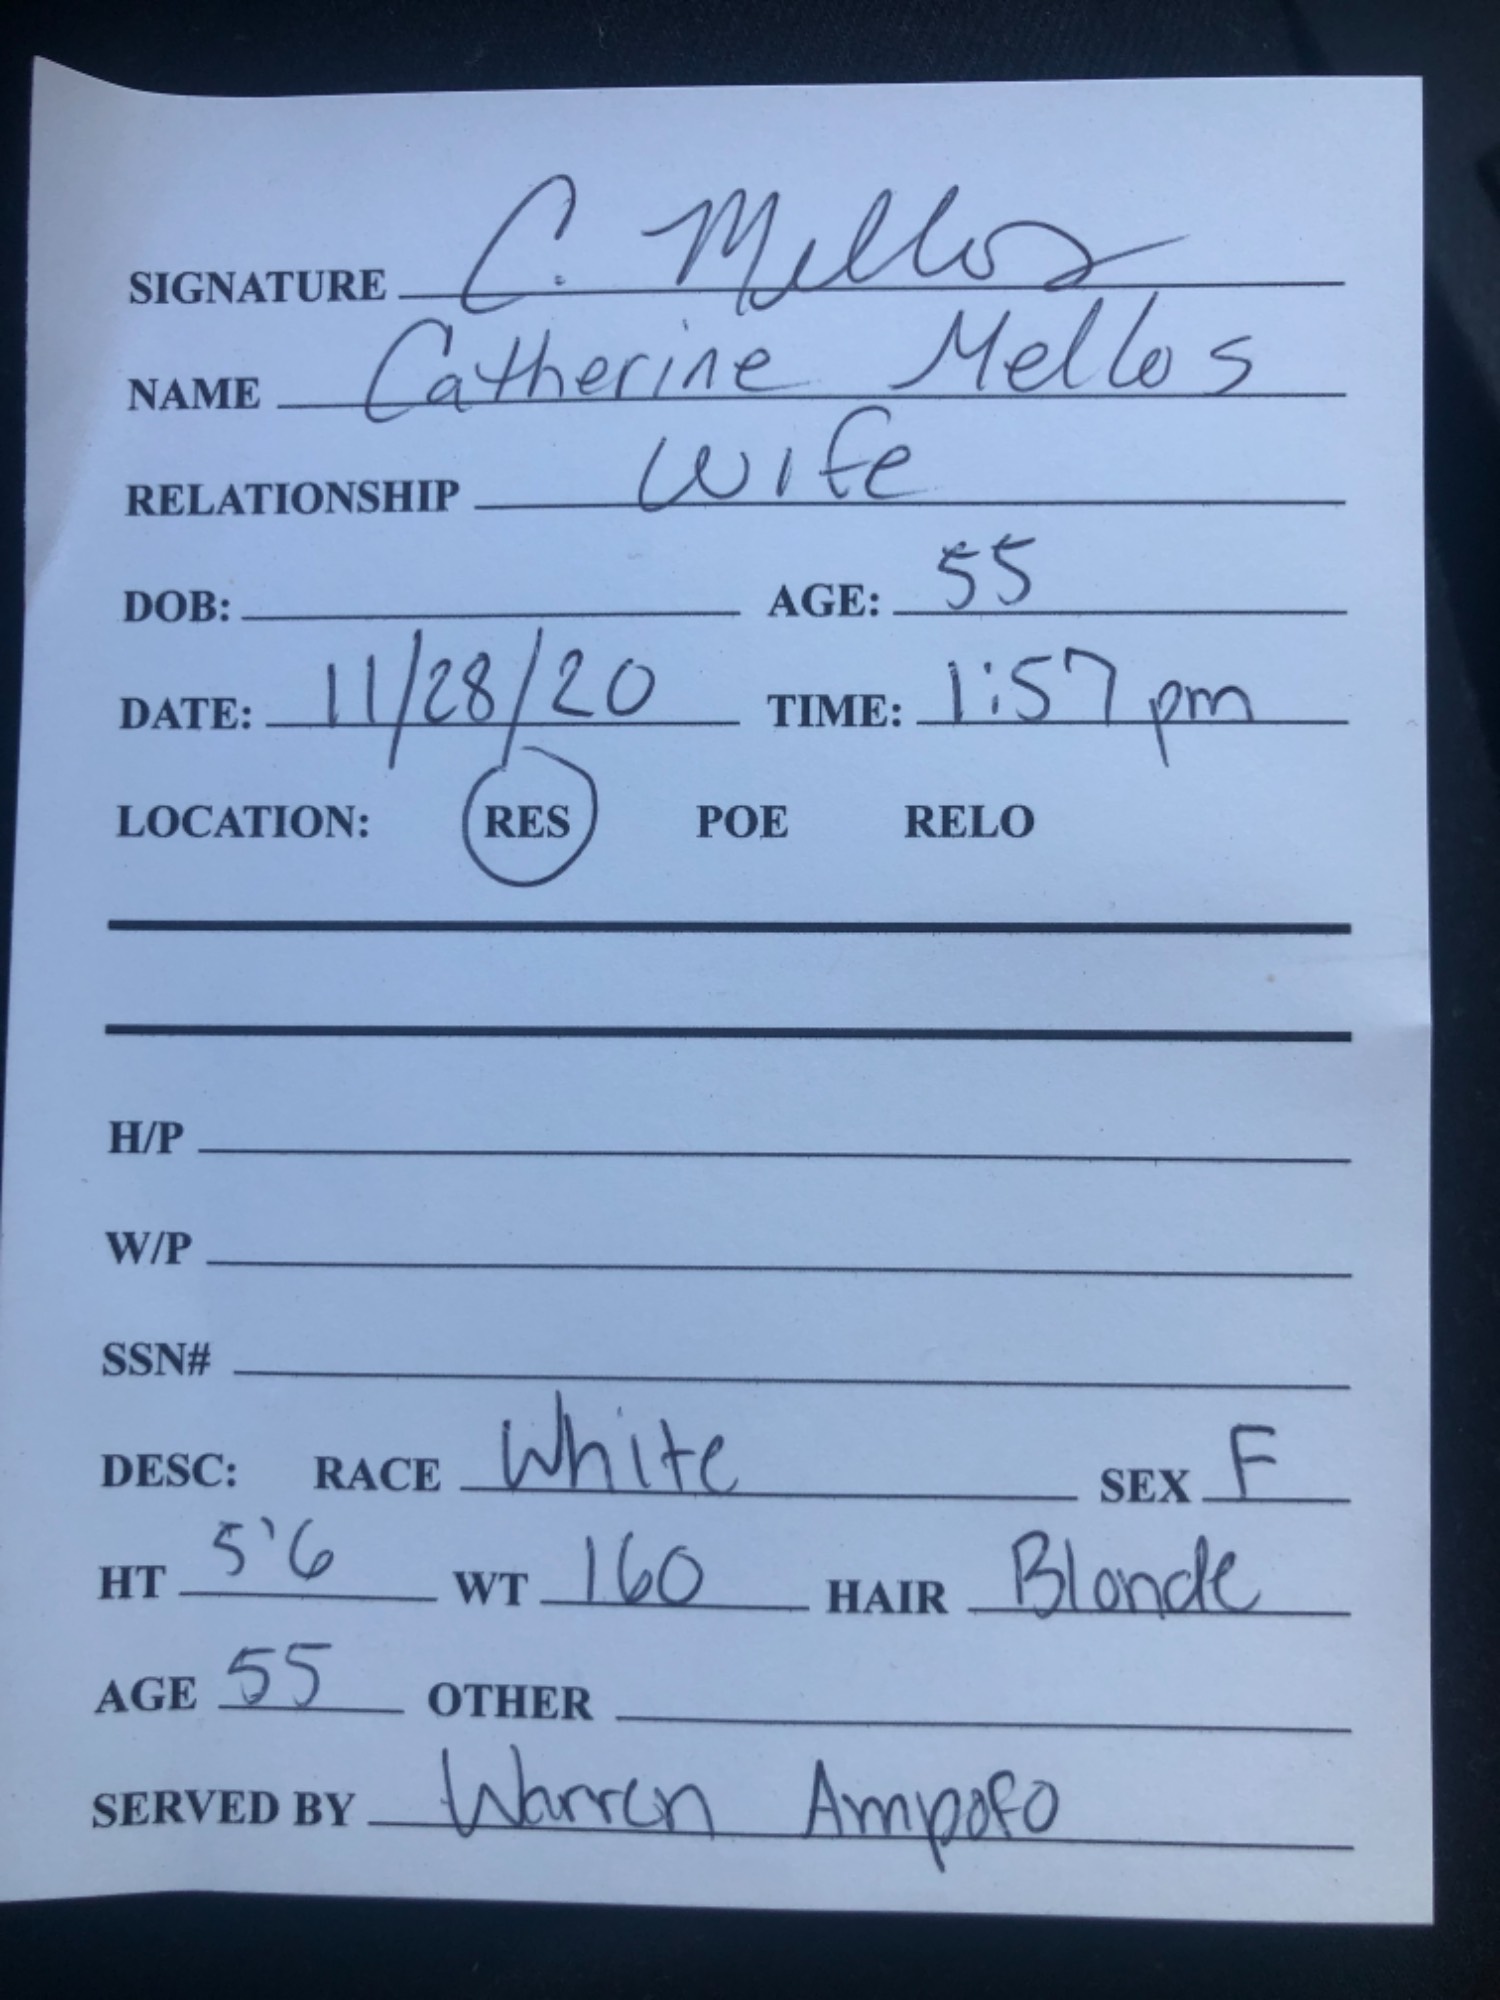 SIGNATURE C. Mellos
NAME Catherine Mellos
RELATIONSHIP wife
DOB: AGE: 55
DATE: 11/28/20 TIME: 1:57 pm
LOCATION: RES POE RELO
H/P
W/P
SSN#
DESC: RACE White SEX F
HT 5'6 WT 160 HAIR Blonde
AGE 55 OTHER
SERVED BY Warren Ampofo